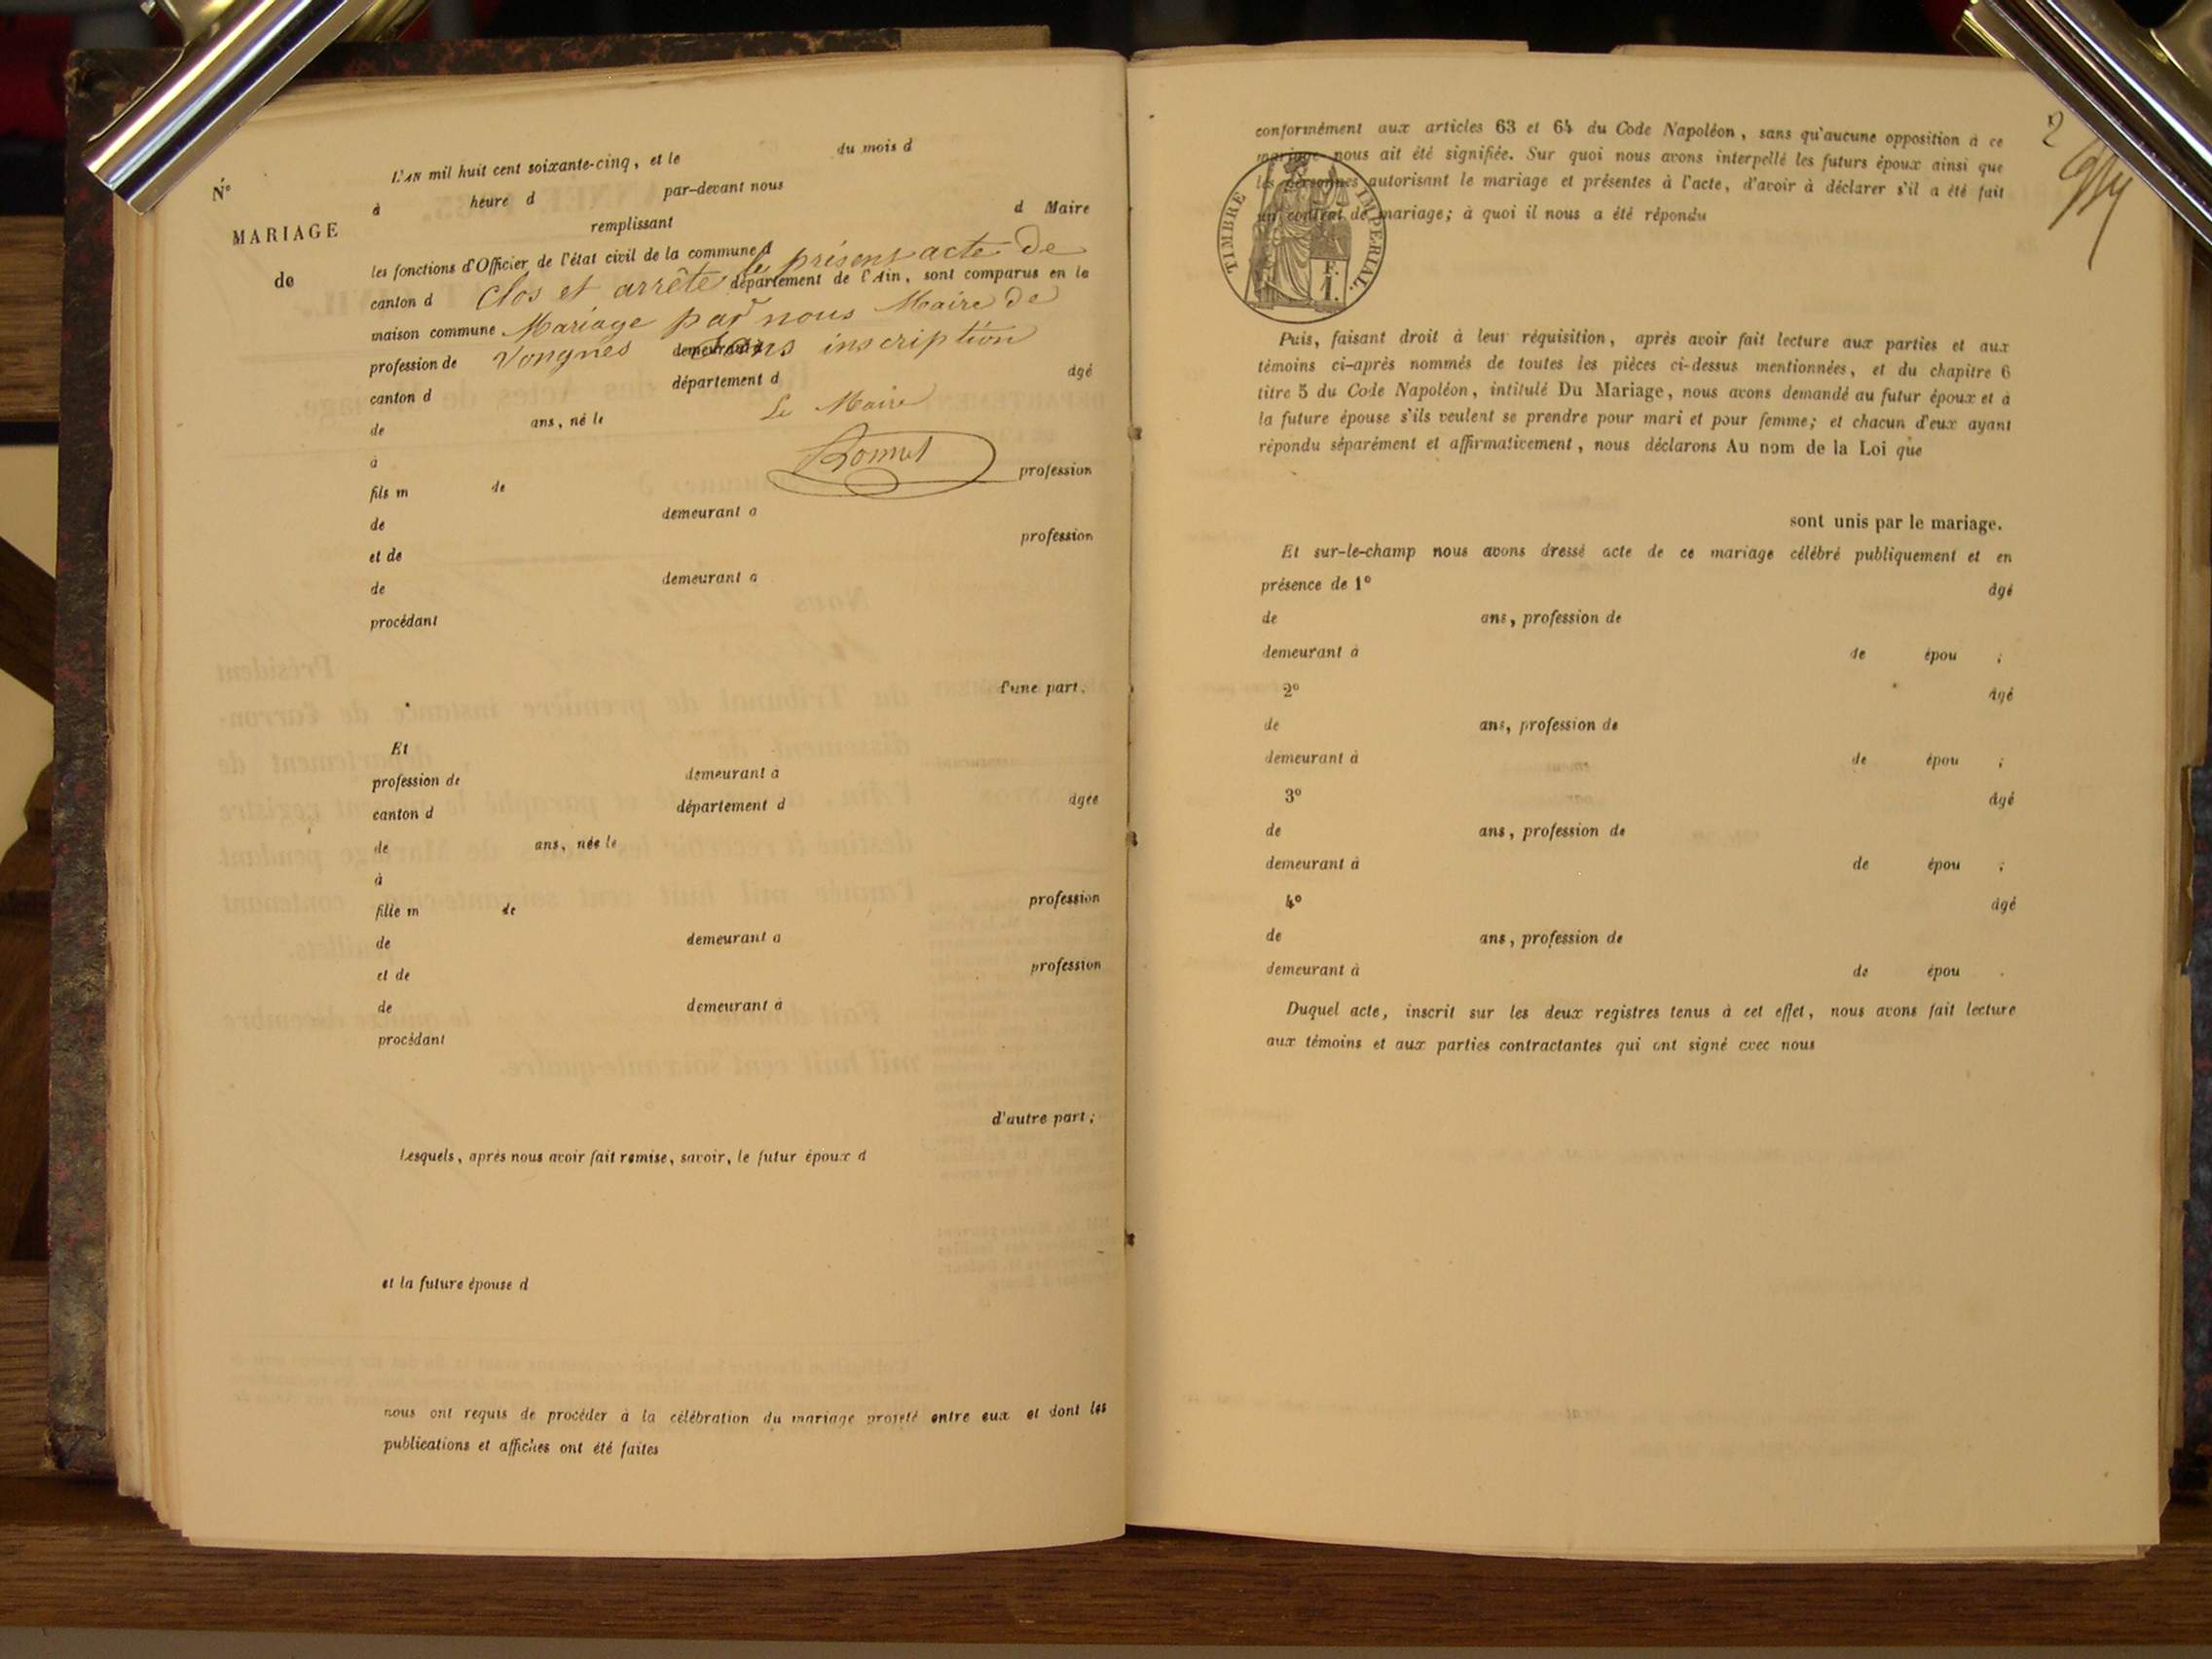 N°
MARIAGE
de
L'AN mil huit cent soixante-cinq, et le du mois d
à heure d par-devant nous
remplissant d Maire
les fonctions d'Officier de l'état civil de la commune d le présent acte de
canton d Clos et arrête département de l'Ain, sont comparus en la
maison commune Mariage par nous Maire de
profession de Vongnes demeurant à sans inscription
canton d département d âgé
de ans, né le Le Maire
à
Bonnet
fils m de profession
de demeurant a
et de profession
de demeurant a
procédant
d'une part.
Et
profession de demeurant à
canton d département d âgée
de ans, née le
à
fille m de profession
de demeurant a
et de profession
de demeurant à
procédant
d'autre part ;
Lesquels, après nous avoir fait remise, savoir, le futur époux d
et la future épouse d
nous ont requis de procéder à la célébration du mariage projeté entre eux et dont les
publications et affiches ont été faites
2
conformément aux articles 63 et 64 du Code Napoléon, sans qu'aucune opposition à ce
mariage nous ait été signifiée. Sur quoi nous avons interpellé les futurs époux ainsi que
les personnes autorisant le mariage et présentes à l'acte, d'avoir à déclarer s'il a été fait
un contrat de mariage; à quoi il nous a été répondu
TIMBRE IMPERIAL.
F.
1.
Puis, faisant droit à leur réquisition, après avoir fait lecture aux parties et aux
témoins ci-après nommés de toutes les pièces ci-dessus mentionnées, et du chapitre 6
titre 5 du Code Napoléon, intitulé Du Mariage, nous avons demandé au futur époux et à
la future épouse s'ils veulent se prendre pour mari et pour femme; et chacun d'eux ayant
répondu séparément et affirmativement, nous déclarons Au nom de la Loi que
sont unis par le mariage.
Et sur-le-champ nous avons dressé acte de ce mariage célébré publiquement et en
présence de 1° âgé
de ans, profession de
demeurant à de épou ;
2° âgé
de ans, profession de
demeurant à de épou ;
3° âgé
de ans, profession de
demeurant à de épou ;
4° âgé
de ans, profession de
demeurant à de épou .
Duquel acte, inscrit sur les deux registres tenus à cet effet, nous avons fait lecture
aux témoins et aux parties contractantes qui ont signé avec nous